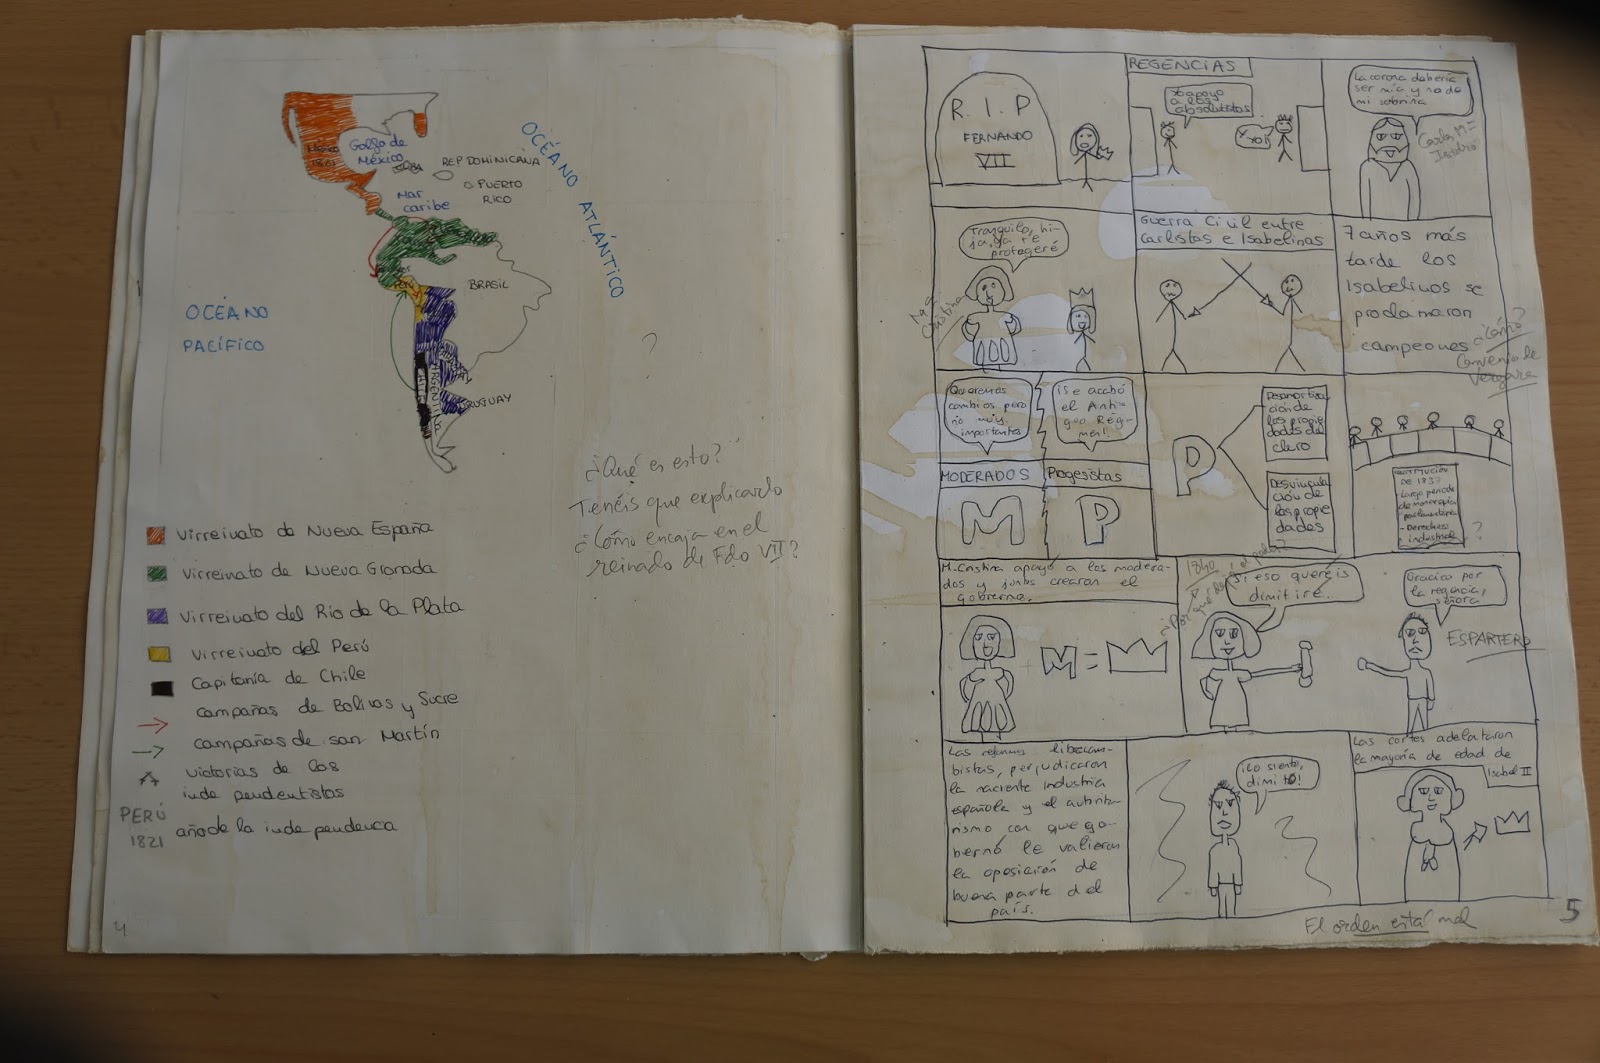 OCÉANO ATLÁNTICO
México
1821
Golfo de
México
REP DOMINICANA
PUERTO
RICO
Mar
Caribe
BRASIL
OCÉANO
PACÍFICO
CHILE
ARGENTINA
URUGUAY
?
Virreinato de Nueva España
Virreinato de Nueva Granada
Virreinato del Río de la Plata
Virreinato del Perú
Capitanía de Chile
campañas de Bolivas y Sucre
campañas de san Martín
victorias de los
inde pendentistas
PERÚ
1821
año de la inde pendenca
¿Qué es esto?
Tenéis que explicarlo
¿Cómo encaja en el
reinado de Fdo VII?
4
R.I.P
FERNANDO
VII
REGENCIAS
Yo apoyo
a los
absolutistas
Y yo!
La corona debería
ser mía y no de
mi sobrina
Carlos Mª
Isidro
Tranquila, hi-
ja, ya te
protegeré
Mª
Cristina
Guerra Civil entre
Carlistas e Isabelinas
7 años más
tarde los
Isabelinos se
proclamaron
campeones
¿Cómo?
Convenio de
Vergara
Queremos
cambios pero
no muy
importantes
MODERADOS
M
¡Se acabó
el Anti-
guo Rég-
men!!
Progesistas
P
P
Desamortiza-
ción de
las propie
dades del
clero
Desvincula-
ción de
las propie
dades
CONSTITUCIÓN
DE 1837
- Largo periodo
de monarquía
parlamentaria
- Derechos
industrial
?
M. Cristina apoyó a los modera-
dos y juntos crearon el
Gobierno.
+ M =
1840
¿Por qué deja el poder?
Si eso queréis
dimitiré...
Gracias por
la regencia,
señora
ESPARTERO
Las reformas librecam-
bistas, perjudicaron
la naciente industria
española y el autorita-
rismo con que go-
bernó le valieron
la oposición de
buena parte del
país.
¡Lo siento,
dimito!
Las cortes adelataron
la mayoría de edad de
Isabel II
El orden está mal
5